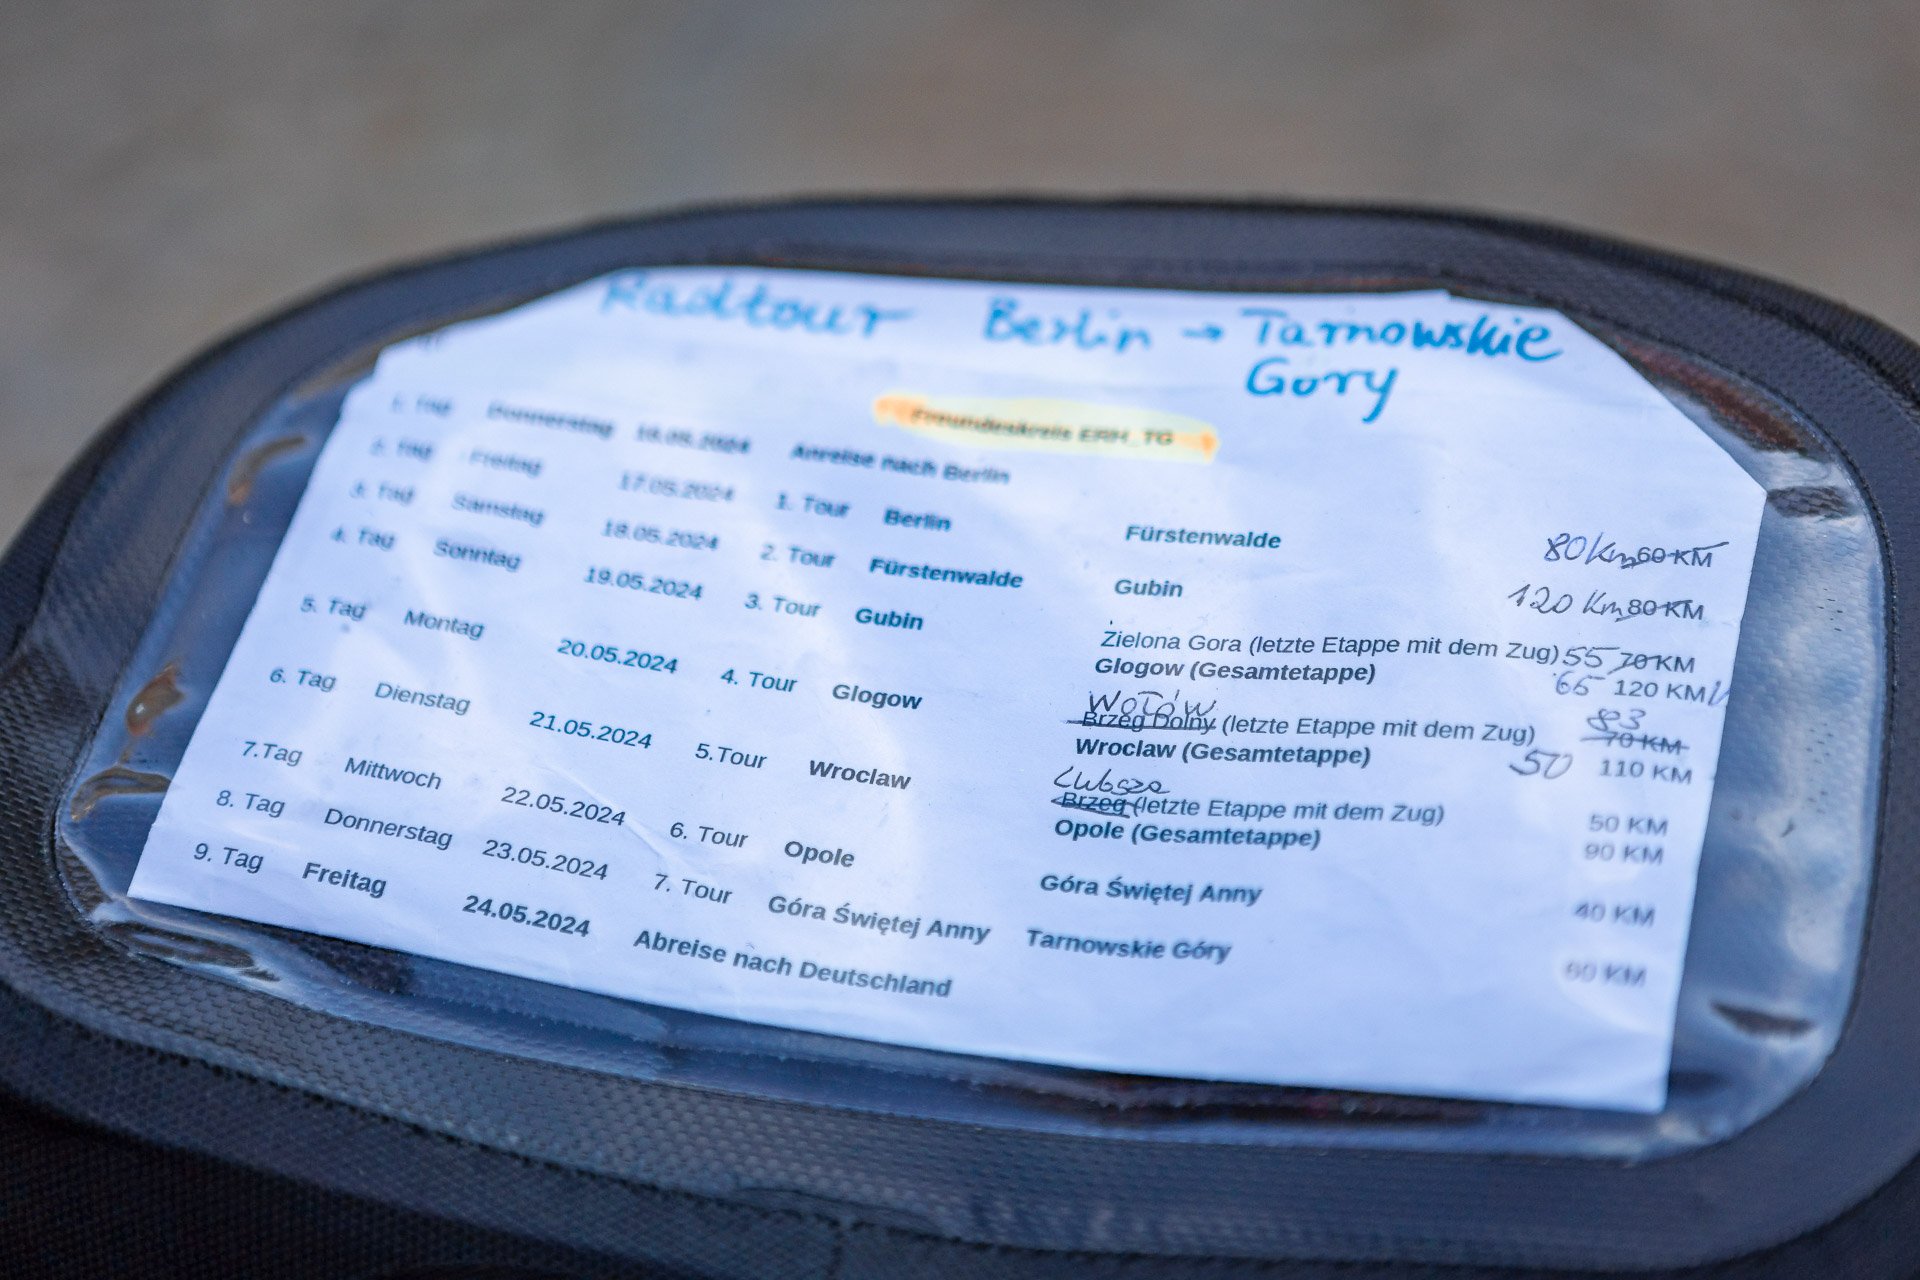 Radtour Berlin → Tarnowskie
Gory
Freundeskreis ERH_TG
1. Tag Donnerstag 16.05.2024 Anreise nach Berlin
2. Tag Freitag 17.05.2024 1. Tour Berlin Fürstenwalde 80 Km 60 KM
3. Tag Samstag 18.05.2024 2. Tour Fürstenwalde Gubin 120 Km 80 KM
4. Tag Sonntag 19.05.2024 3. Tour Gubin Zielona Gora (letzte Etappe mit dem Zug) 55 70 KM
Glogow (Gesamtetappe) 65 120 KM
Wołów 83
5. Tag Montag 20.05.2024 4. Tour Glogow Brzeg Dolny (letzte Etappe mit dem Zug) 70 KM
Wroclaw (Gesamtetappe) 50 110 KM
Lubsza
6. Tag Dienstag 21.05.2024 5.Tour Wroclaw Brzeg (letzte Etappe mit dem Zug) 50 KM
Opole (Gesamtetappe) 90 KM
7.Tag Mittwoch 22.05.2024 6. Tour Opole Góra Świętej Anny 40 KM
8. Tag Donnerstag 23.05.2024 7. Tour Góra Świętej Anny Tarnowskie Góry 60 KM
9. Tag Freitag 24.05.2024 Abreise nach Deutschland